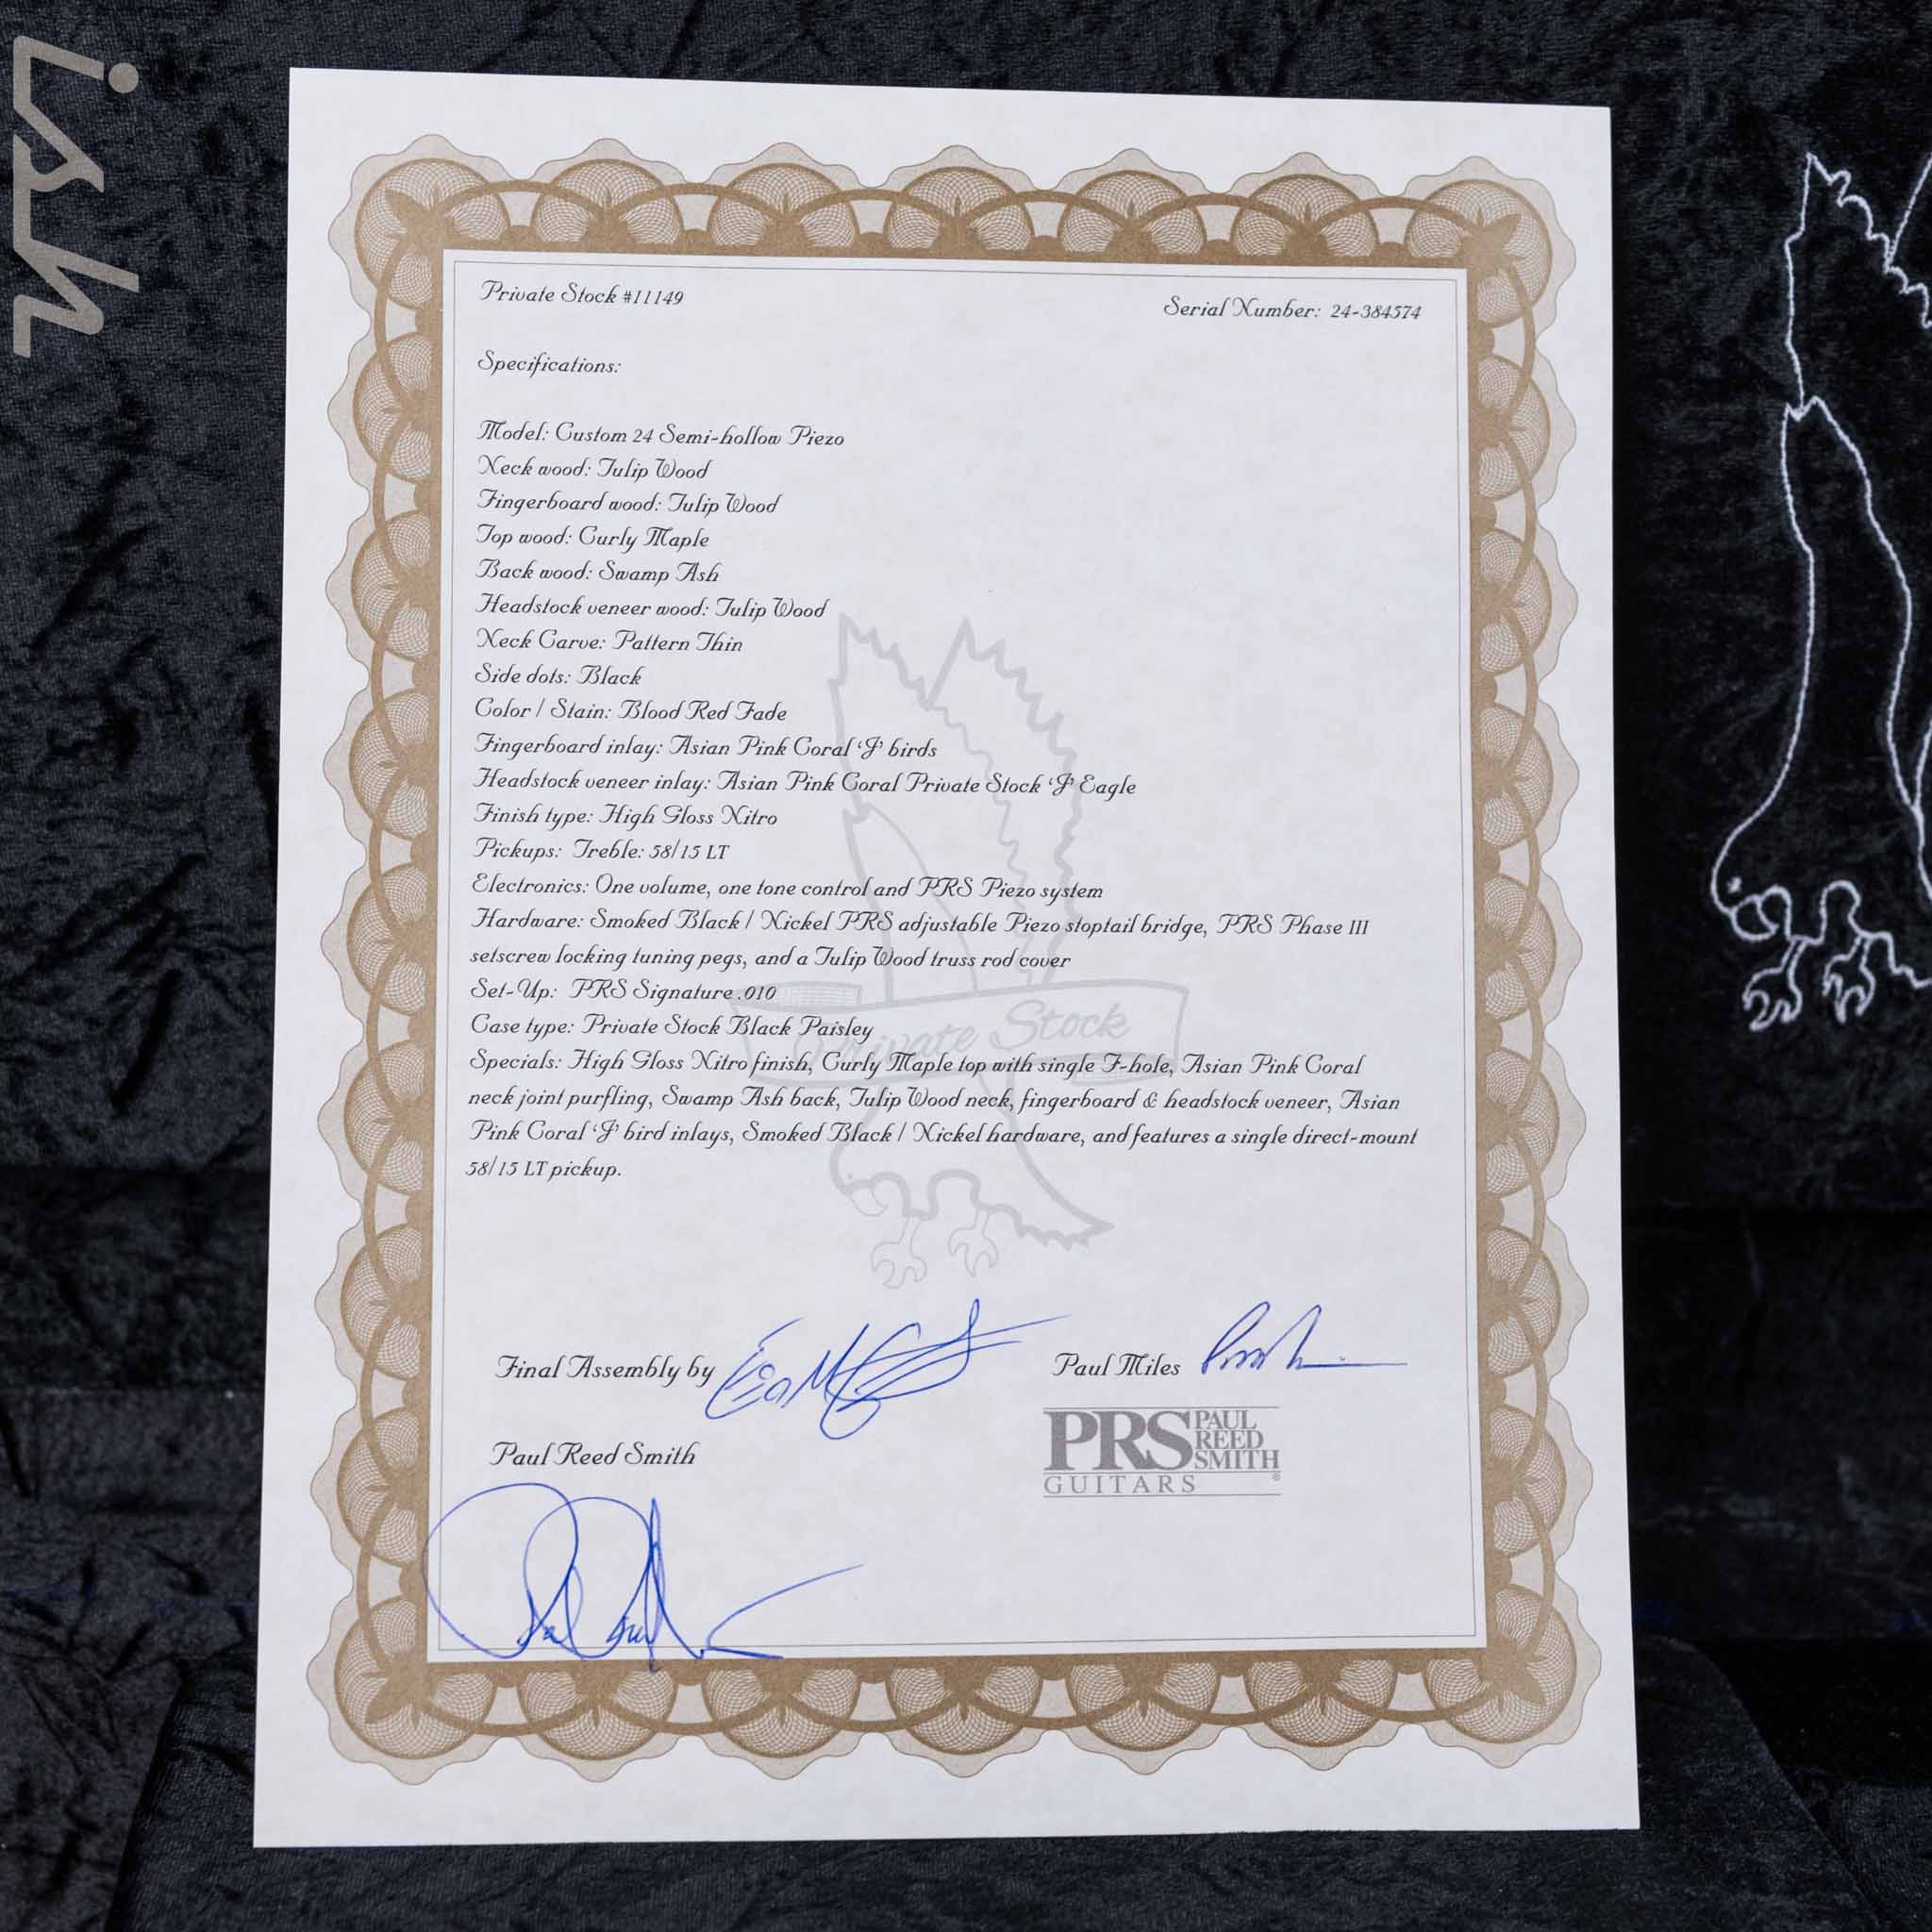 ish
Private Stock #11149
Serial Number: 24-384574
Specifications:
Model: Custom 24 Semi-hollow Piezo
Neck wood: Tulip Wood
Fingerboard wood: Tulip Wood
Top wood: Curly Maple
Back wood: Swamp Ash
Headstock veneer wood: Tulip Wood
Neck Carve: Pattern Thin
Side dots: Black
Color / Stain: Blood Red Fade
Fingerboard inlay: Asian Pink Coral ‘J’ birds
Headstock veneer inlay: Asian Pink Coral Private Stock ‘J’ Eagle
Finish type: High Gloss Nitro
Pickups: Treble: 58/15 LT
Electronics: One volume, one tone control and PRS Piezo system
Hardware: Smoked Black / Nickel PRS adjustable Piezo stoptail bridge, PRS Phase III
setscrew locking tuning pegs, and a Tulip Wood truss rod cover
Set-Up: PRS Signature .010
Case type: Private Stock Black Paisley
Private Stock
Specials: High Gloss Nitro finish, Curly Maple top with single F-hole, Asian Pink Coral
neck joint purfling, Swamp Ash back, Tulip Wood neck, fingerboard & headstock veneer, Asian
Pink Coral ‘J’ bird inlays, Smoked Black / Nickel hardware, and features a single direct-mount
58/15 LT pickup.
Final Assembly by
Paul Miles
Paul Reed Smith
PRS PAUL REED SMITH
GUITARS ®